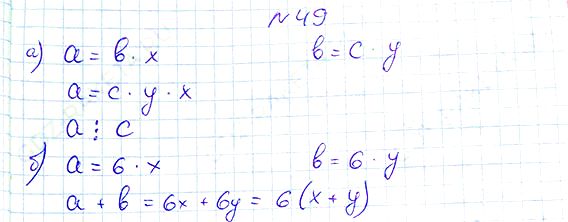 № 49
а) a = b · x    b = c · y
a = c · y · x
a ⋮ c
б) a = 6 · x    b = 6 · y
a + b = 6x + 6y = 6 (x + y)